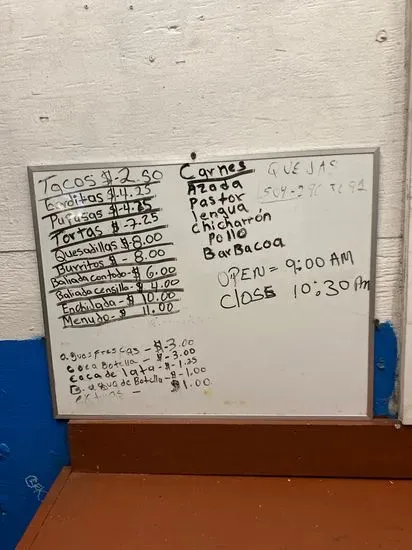 Tacos $-2.50
Gorditas $-4.25
Pupusas $-4.25
Tortas $-7.25
Quesadillas $-8.00
Burritos - 8.00
Baliada contodo-$ 6.00
Baliada censilla-$ 4.00
Enchilada-$ 10.00
Menudo-$ 11.00
a.guas Frescas-$-3.00
Coca Botella-$-3.00
Coca de lata-$-1.25
agua de Botella-$-1.00
$1.00
Carnes
Azada
Pastor
lengua
Chicharrón
Pollo
BarBacoa
QUEJAS
OPEN = 9:00 AM
ClOSE 10:30 Pm